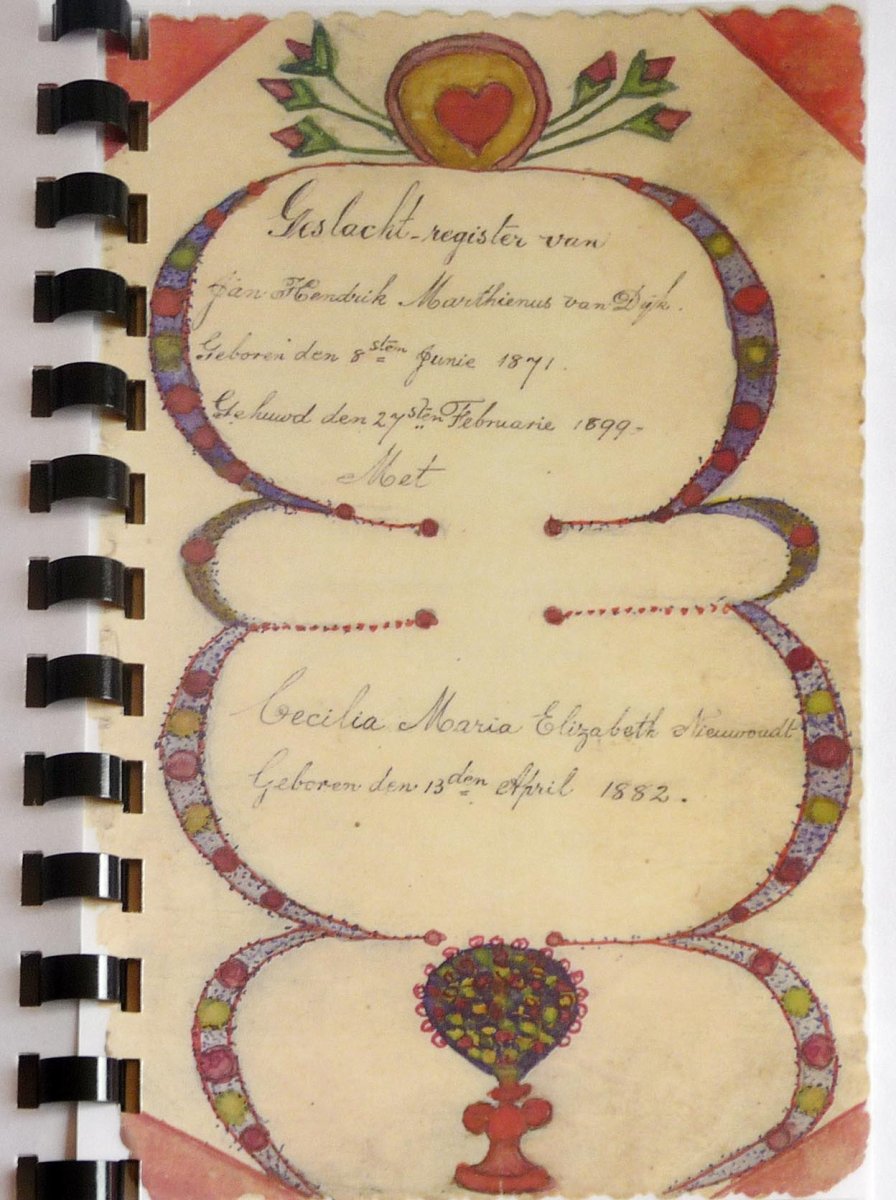 Geslacht-register van
Jan Hendrik Marthienus van Dijk.
Geboren den 8sten Junie 1871.
Gehuwd den 27sten Februarie 1899-
Met
Cecilia Maria Elizabeth Nieuwoudt
Geboren den 13den April 1882.